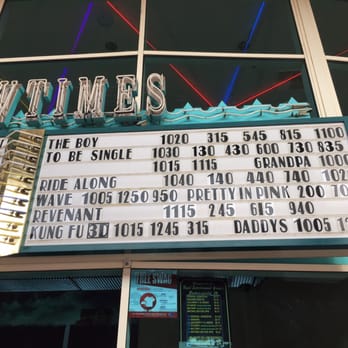 TIMES
THE BOY 1020 315 545 815 1100
TO BE SINGLE 1030 130 430 600 730 835
1015 1115 GRANDPA 1000
RIDE ALONG 1040 140 440 740 102
WAVE 1005 1250 950 PRETTY IN PINK 200 70
REVENANT 1115 245 615 940
KUNG FU 3D 1015 1245 315 DADDYS 1005 1